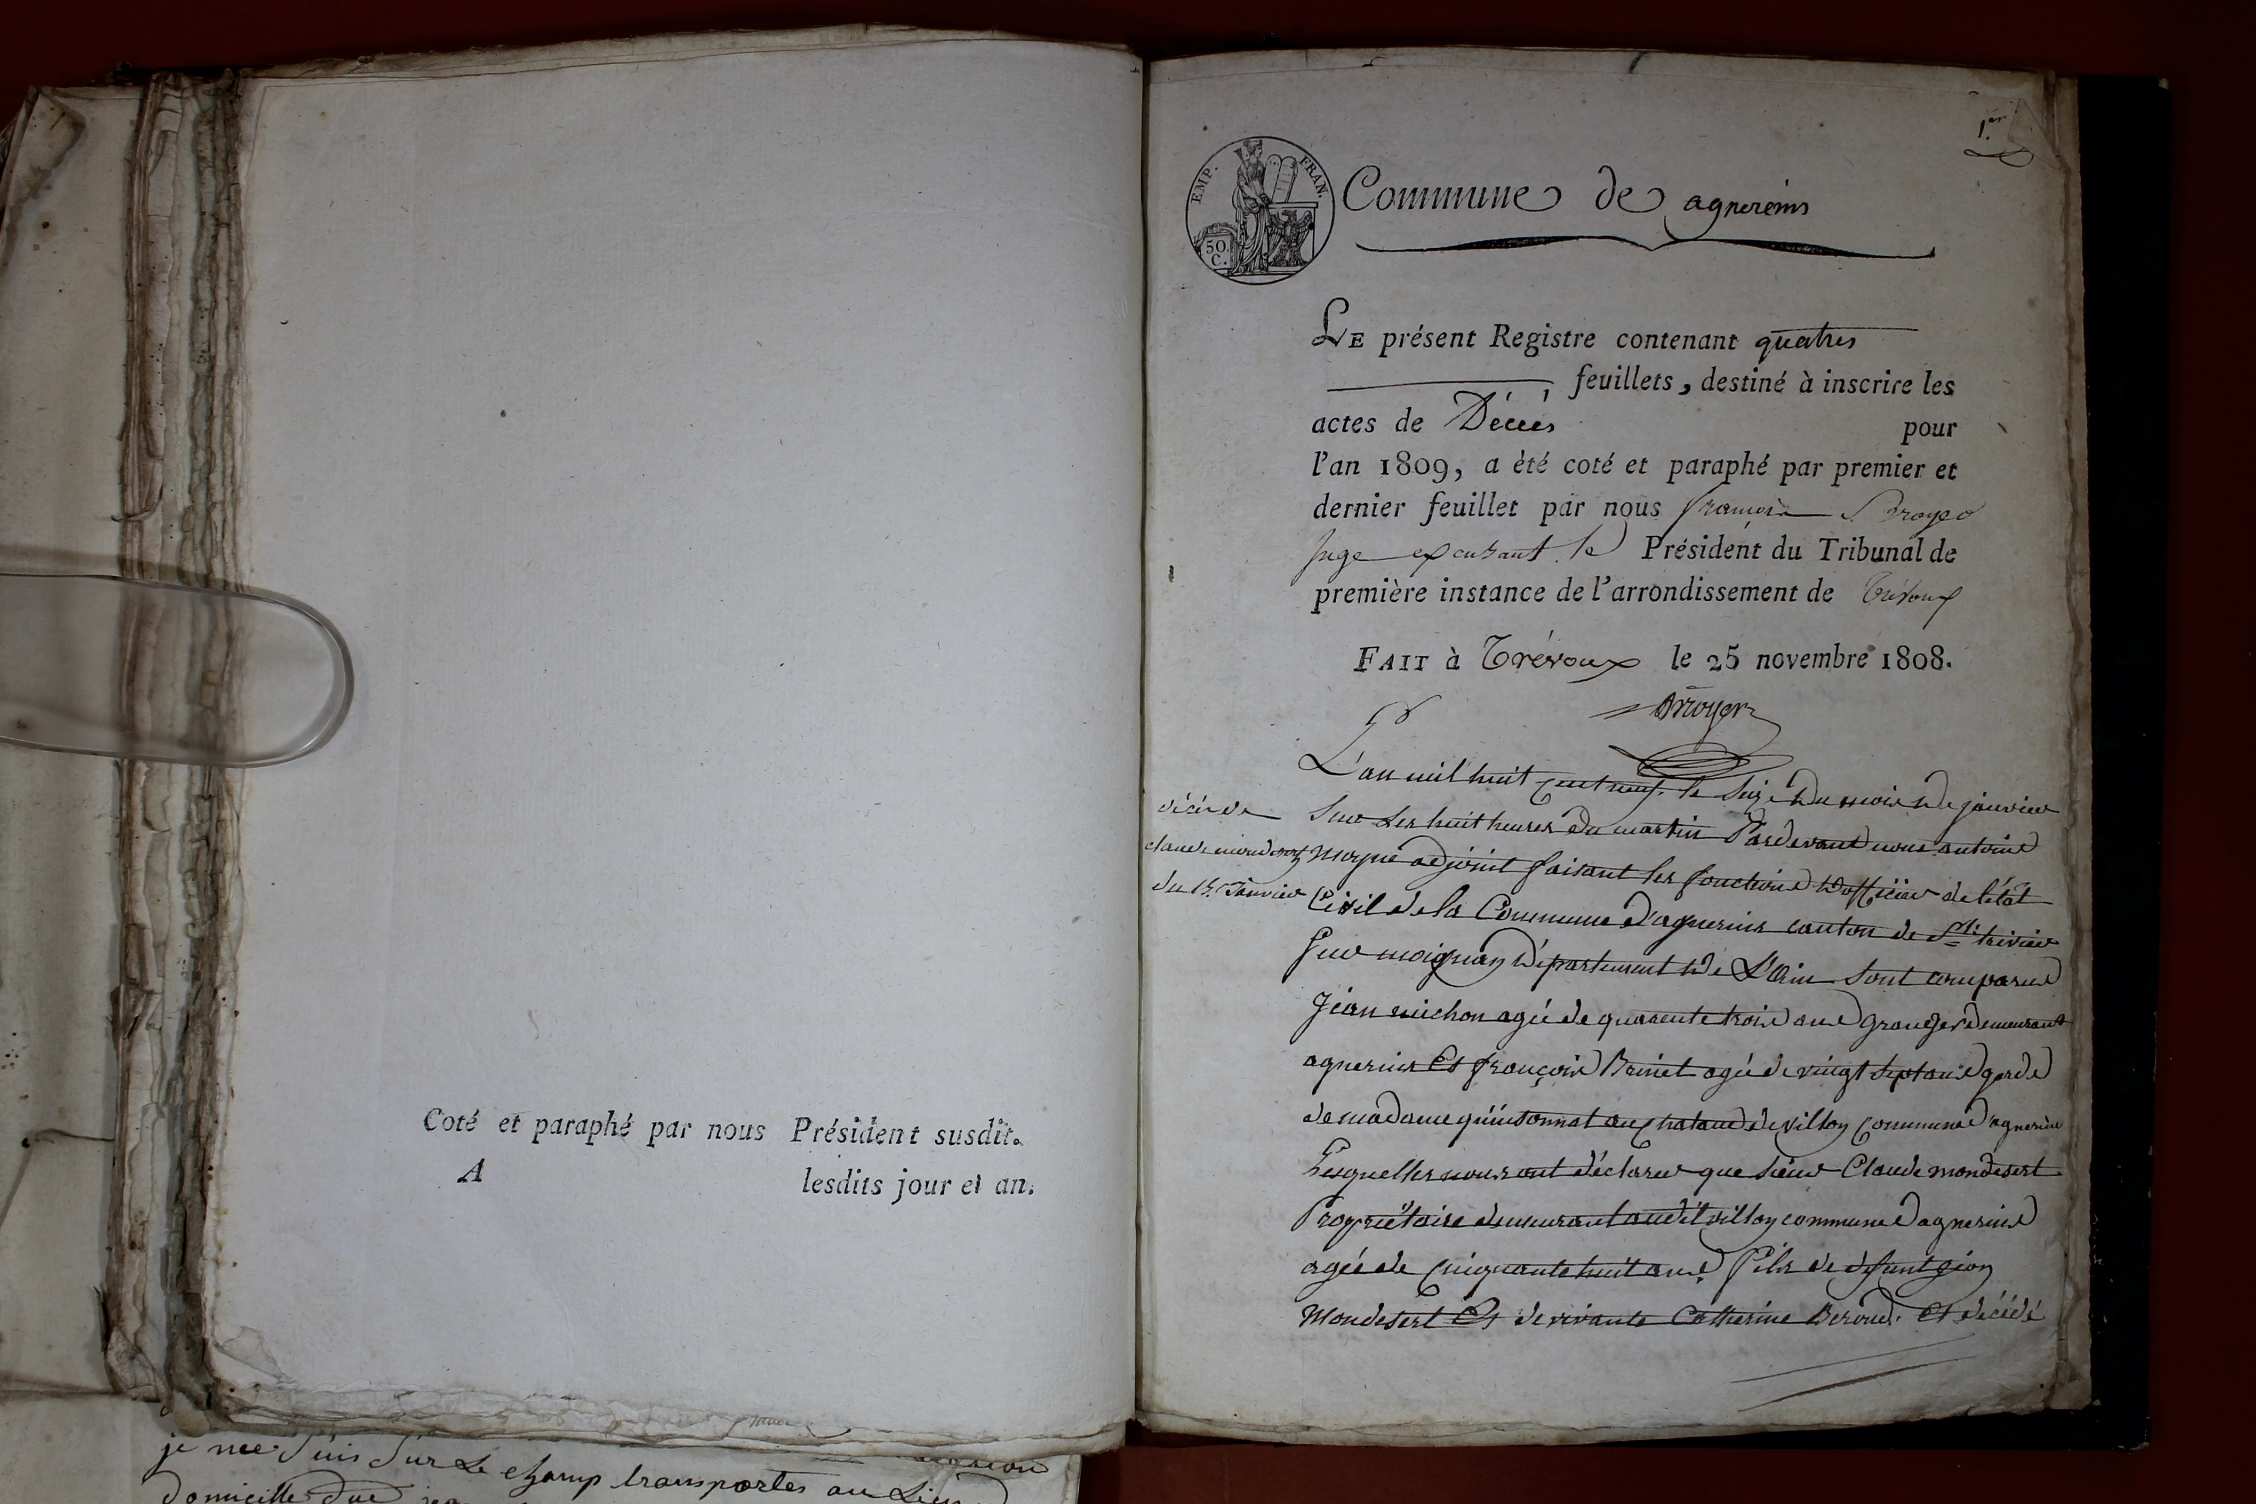 Coté et paraphé par nous Président susdit.
A lesdits jour et an.
je me suis sur le champ transportes au Lieu
domicille
1er
EMP. FRAN.
50 C.
Commune de agnereins
LE présent Registre contenant quatres
feuillets, destiné à inscrire les
actes de Décés pour
l'an 1809, a été coté et paraphé par premier et
dernier feuillet par nous françois
Juge exerçant le Président du Tribunal de
première instance de l'arrondissement de Trévoux
FAIT à Trévoux le 25 novembre 1808.
L'an mil huit cent neuf le Seize du mois de janvier
décés de
claude mondesert
du 15 Janvier
Sur les huit heures du martin Pardevant nous antoine
moyne adjoint faisant les fonctions d'officier de l'état
Civil de la Commune d'agnerins canton de St trivier
Sur moignan Département de L'Ain sont comparus
Jean michon agé de quarente trois ans granger demeurant
agnerins Et françois Brinet agé de vingt sept ans garde
de madame quinsonnat au chataud de villon commune d'agnerins
Lesquelles nous ont déclarer que sieur Claude mondesert
Propriétaire demeurant audit villon commune d'agnerins
agée de Cinquante huit ans, fils de défunt
Mondesert Et de vivante Catherine Beroud. Et décédé